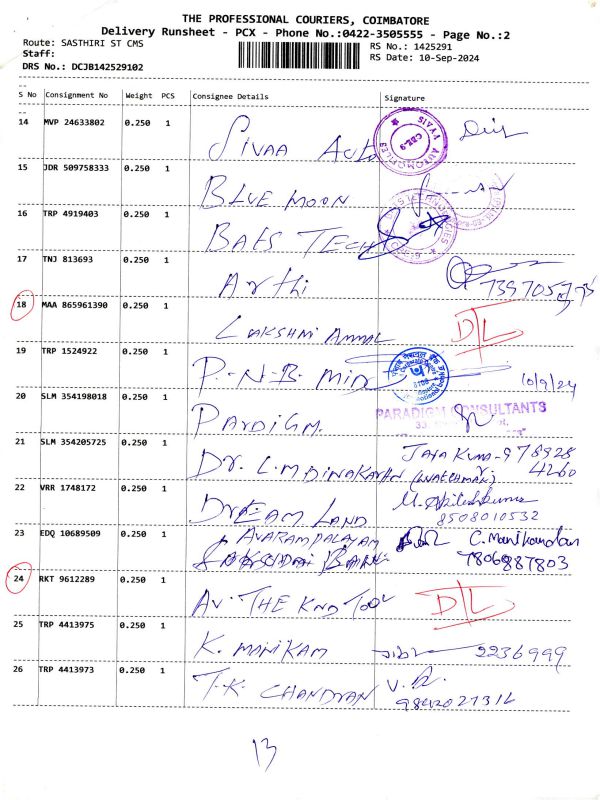 THE PROFESSIONAL COURIERS, COIMBATORE
Delivery Runsheet - PCX - Phone No.:0422-3505555 - Page No.:2
Route: SASTHIRI ST CMS
RS No.: 1425291
Staff:
RS Date: 10-Sep-2024
DRS No.: DCJB142529102
S No Consignment No Weight PCS Consignee Details Signature
14 MVP 24633802 0.250 1 SIVAA AUTO
VYAIS AUTOMOFILES
CBE-9
15 JDR 509758333 0.250 1 BLUE MOON
16 TRP 4919403 0.250 1 BAES TECH
17 TNJ 813693 0.250 1 Arthi
18 MAA 865961390 0.250 1 LAKSHMI AMMAL D/L
19 TRP 1524922 0.250 1 P.-N-B- MID 10/9/24
20 SLM 354198018 0.250 1 PARDIGM
PARADIGM CONSULTANTS
21 SLM 354205725 0.250 1 Dr. L.M DINAKARAN (WATCHMAN) JAYA KUMAR-978928
4260
22 VRR 1748172 0.250 1 DREAM LAND
8508010532
23 EDQ 10689509 0.250 1 AVARAMPALAYAM C.Manikandan
7806887803
24 RKT 9612289 0.250 1 AV. THE KND TOOL D/L
25 TRP 4413975 0.250 1 K. MANIKAM 2236999
26 TRP 4413973 0.250 1 T.K. CHANDRAN
13